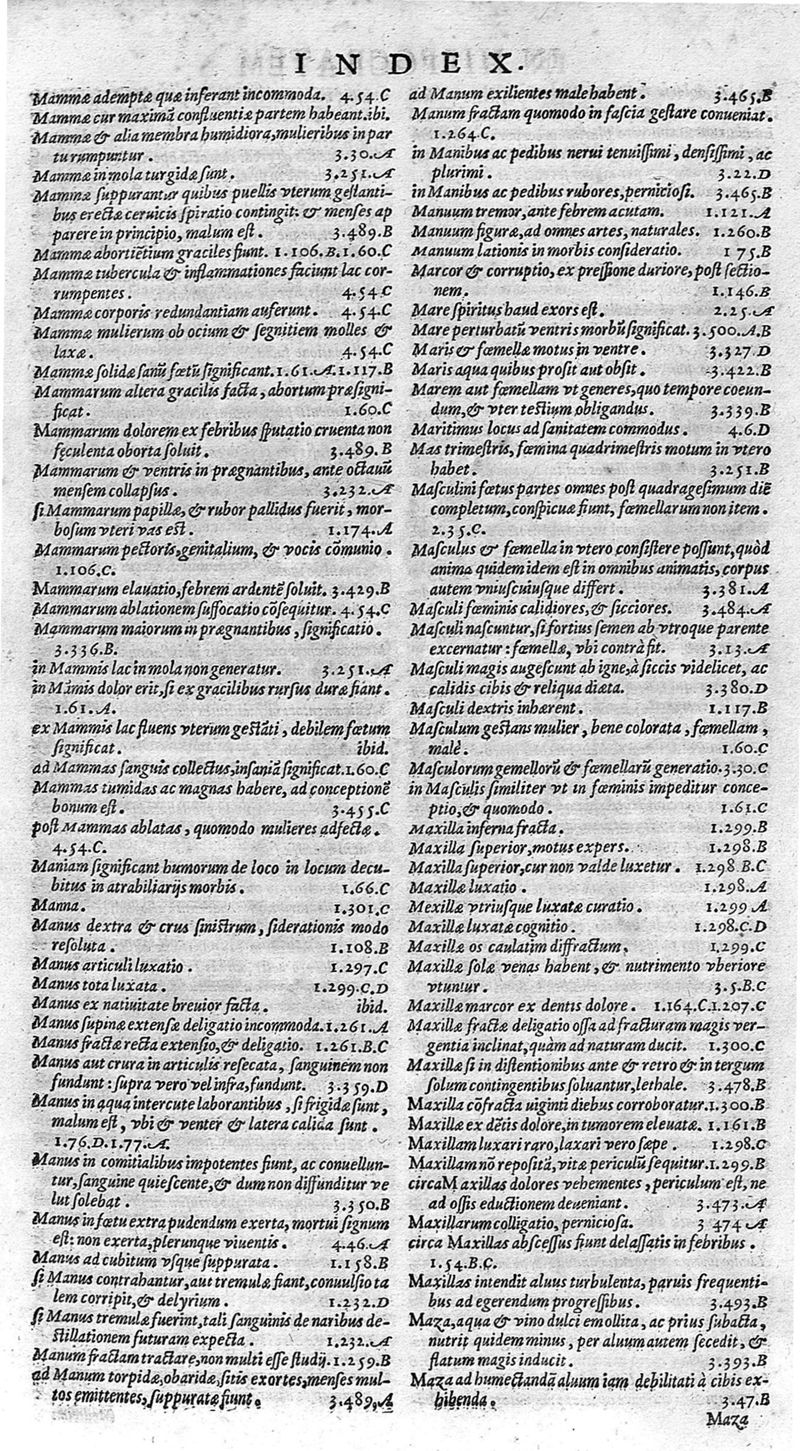 INDEX.
Mammæ ademptæ quæ inferant incommoda. 4.54.C
Mammæ cur maximã confluentiæ partem habeant.ibi.
Mammæ & alia membra humidiora,mulieribus in par
tu rumpuntur. 3.30.A
Mammæ in mola turgidæ sunt. 3.251.A
Mammæ suppurantur quibus puellis vterum gestanti-
bus erectæ ceruicis spiratio contingit: & menses ap
parere in principio, malum est. 3.489.B
Mammæ abortiẽtium graciles fiunt. 1.106.B.1.60.C
Mammæ tubercula & inflammationes faciunt lac cor-
rumpentes. 4.54.C
Mammæ corporis redundantiam auferunt. 4.54.C
Mammæ mulierum ob ocium & segnitiem molles &
laxæ. 4.54.C
Mammæ solidæ sanũ fœtũ significant.1.61.A.1.117.B
Mammarum altera gracilis facta, abortum præsigni-
ficat. 1.60.C
Mammarum dolorem ex febribus sputatio cruenta non
fęculenta oborta soluit. 3.489.B
Mammarum & ventris in prægnantibus, ante octauũ
mensem collapsus. 3.232.A
si Mammarum papillæ, & rubor pallidus fuerit, mor-
bosum vteri vas est. 1.174.A
Mammarum pectoris,genitalium, & vocis cõmunio.
1.106.C.
Mammarum eleuatio,febrem ardentẽ soluit. 3.429.B
Mammarum ablationem suffocatio cõsequitur. 4.54.C
Mammarum maiorum in prægnantibus, significatio.
3.336.B.
in Mammis lac in mola non generatur. 3.251.A
in Mãmis dolor erit,si ex gracilibus rursus duræ fiant.
1.61.A.
ex Mammis lac fluens vterum gestãti, debilem fœtum
significat. ibid.
ad Mammas sanguis collectus,insaniã significat.1.60.C
Mammas tumidas ac magnas habere, ad conceptionẽ
bonum est. 3.455.C
post Mammas ablatas, quomodo mulieres adfectæ.
4.54.C.
Maniam significant humorum de loco in locum decu-
bitus in atrabiliarijs morbis. 1.66.C
Manna. 1.301.C
Manus dextra & crus sinistrum, siderationis modo
resoluta. 1.108.B
Manus articuli luxatio. 1.297.C
Manus tota luxata. 1.299.C.D
Manus ex natiuitate breuior facta. ibid.
Manus supinæ extensæ deligatio incommoda.1.261.A
Manus fractæ recta extensio,& deligatio. 1.261.B.C
Manus aut crura in articulis resecata, sanguinem non
fundunt: supra vero vel infra,fundunt. 3.359.D
Manus in aqua intercute laborantibus, si frigidæ sunt,
malum est, vbi & venter & latera calida sunt.
1.76.D.1.77.A.
Manus in comitialibus impotentes fiunt, ac conuellun-
tur,sanguine quiescente,& dum non diffunditur ve
lut solebat. 3.350.B
Manus in fœtu extra pudendum exerta, mortui signum
est: non exerta,plerunque viuentis. 4.46.A
Manus ad cubitum vsque suppurata. 1.158.B
si Manus contrahantur,aut tremulæ fiant,conuulsio ta
lem corripit,& delyrium. 1.232.D
si Manus tremulæ fuerint,tali sanguinis de naribus de-
stillationem futuram expecta. 1.232.A
Manum fractam tractare,non multi esse studij.1.259.B
ad Manum torpidæ,obaridæ,sitis exortes,menses mul-
tos emittentes,suppuratæ fiunt. 3.489.A
ad Manum exilientes male habent. 3.465.B
Manum fractam quomodo in fascia gestare conueniat.
1.264.C.
in Manibus ac pedibus nerui tenuissimi, densissimi, ac
plurimi. 3.22.D
in Manibus ac pedibus rubores,perniciosi. 3.465.B
Manuum tremor,ante febrem acutam. 1.121.A
Manuum figuræ,ad omnes artes, naturales. 1.260.B
Manuum lationis in morbis consideratio. 1 75.B
Marcor & corruptio, ex pressione duriore, post sectio-
nem. 1.146.B
Mare spiritus haud exors est. 2.25.A
Mare perturbatũ ventris morbũ significat. 3.500.A.B
Maris & fœmellæ motus in ventre. 3.327.D
Maris aqua quibus prosit aut obsit. 3.422.B
Marem aut fœmellam vt generes,quo tempore coeun-
dum,& vter testium obligandus. 3.339.B
Maritimus locus ad sanitatem commodus. 4.6.D
Mas trimestris, fœmina quadrimestris motum in vtero
habet. 3.251.B
Masculini fœtus partes omnes post quadragesimum diẽ
completum,conspicuæ fiunt, fœmellarum non item.
2.35.C.
Masculus & fœmella in vtero consistere possunt,quòd
anima quidem idem est in omnibus animatis, corpus
autem vniuscuiusque differt. 3.381.A
Masculi fœminis calidiores,& sicciores. 3.484.A
Masculi nascuntur,si fortius semen ab vtroque parente
excernatur: fœmellæ, vbi contrà fit. 3.13.A
Masculi magis augescunt ab igne,à siccis videlicet, ac
calidis cibis & reliqua diæta. 3.380.D
Masculi dextris inhærent. 1.117.B
Masculum gestans mulier, bene colorata, fœmellam,
malè. 1.60.C
Masculorum gemellorũ & fœmellarũ generatio.3.30.C
in Masculis similiter vt in fœminis impeditur conce-
ptio,& quomodo. 1.61.C
Maxilla inferna fracta. 1.299.B
Maxilla superior,motus expers. 1.298.B
Maxilla superior,cur non valde luxetur. 1.298 B.C
Maxillæ luxatio. 1.298.A
Mexillæ vtriusque luxatæ curatio. 1.299 A
Maxillæ luxatæ cognitio. 1.298.C.D
Maxillæ os caulatim diffractum. 1.299.C
Maxillæ solæ venas habent, & nutrimento vberiore
vtuntur. 3.5.B.C
Maxillæ marcor ex dentis dolore. 1.164.C.1.207.C
Maxillæ fractæ deligatio ossa ad fracturam magis ver-
gentia inclinat,quàm ad naturam ducit. 1.300.C
Maxillæ si in distentionibus ante & retro & in tergum
solum contingentibus soluantur,lethale. 3.478.B
Maxilla cõfracta uiginti diebus corroboratur.1.300.B
Maxillæ ex dẽtis dolore,in tumorem eleuatæ. 1.161.B
Maxillam luxari raro, laxari vero sæpe. 1.298.C
Maxillam nõ repositã,vitæ periculũ sequitur.1.299.B
circa Maxillas dolores vehementes, periculum est, ne
ad ossis eductionem deueniant. 3.473.A
Maxillarum colligatio, perniciosa. 3 474 A
circa Maxillas abscessus fiunt delassatis in febribus.
1.54.B.C.
Maxillas intendit aluus turbulenta, paruis frequenti-
bus ad egerendum progressibus. 3.493.B
Maza,aqua & vino dulci emollita, ac prius subacta,
nutrit quidem minus, per aluum autem secedit, &
flatum magis inducit. 3.393.B
Maza ad humectandã aluum iam debilitati à cibis ex-
hibenda. 3.47.B
Maza